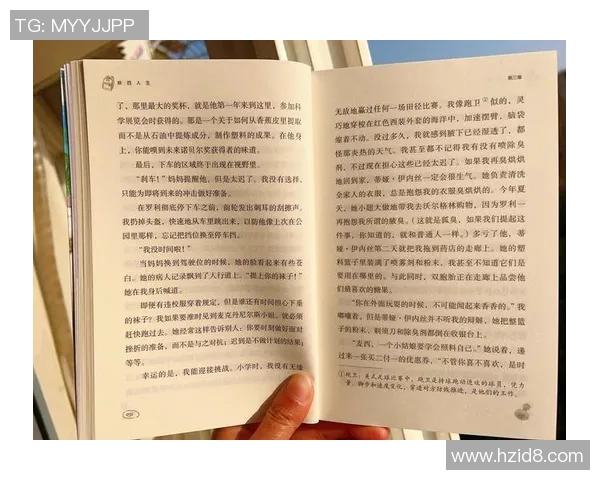 TG: MYYJJPP
麻烦人生
了，那里最大的奖杯，就是他第一年来到这里，参加科
学展览会时获得的。那是一个关于如何从香蕉皮里提取
而不是从石油中提炼成分，制作塑料的成果。在他身
上，你能嗅到未来诺贝尔奖获得者的味道。
最后，下车的区域终于出现在视野里。
“刹车！”妈妈提醒他，但是太迟了。我没有选择，
只能为即将到来的冲击做好准备。
在罗利彻底停下车之前，前轮发出刺耳的刮擦声，
我扔掉头盔，快速地从车里跳出来，以防他像上次在公
园里那样，忘记把挡位换至停车挡。
“我没时间啦！”
当妈妈换到驾驶位的时候，她的脸看起来有些苍
白。她的病人记录飘到了人行道上。“提上你的袜子！”她
在我身后喊道。
即便有连校服穿着规定，但是谁还有时间担心下垂
的袜子？我如果要准时见到麦克丹尼尔斯小姐，就必须
赶快跑过去。她经常这样告诉别人：你要时刻做好面对
挫折的准备，而不是与之对抗；迟到是不做计划的结果；
等等。
幸运的是，我能迎接挑战。小学时，我没有无缘
第三章
无故地赢过任何一场田径比赛。我像跑卫②似的，灵
巧地穿梭在红色西装外套的海洋中，加速摆臂，脑袋
缩着不动。没过多久，我就感到腋下已经湿透了，都
怪那炎热的天气。我甚至都不记得我有没有喷除臭
剂，不过现在担心这些已经太迟了。如果我再臭烘烘
地回到家，蒂娅·伊内丝一定会很生气。她负责清洗
全家人的衣服，总是抱怨我的衣服臭烘烘的。今年夏
天，她小题大做地带我去沃尔格林购物，因为罗利一
再抱怨我所谓的腋臭。（这就是孤臭，如果我们提起这
件事，你知道的，就和普通人一样。）多亏了他，蒂
娅·伊内丝第二天就把我拖到药店的走廊上。她的塑
料篮子里装满了喷雾剂和粉末，我甚至不知道它们是
要用在哪里的。与此同时，双胞胎正在走廊上品尝他
们最喜欢的糖果。
“你在外面玩耍的时候，不可能闻起来香香的。”我
嘟囔着，但是蒂娅·伊内丝并不听我的辩解，她把整篮
子的粉末、剃须刀和除臭剂都倒在收银台上。
“麦西，一个小姑娘要学会照料自己。”她说着，递
过来一张买二付一的优惠券，“不管你喜不喜欢，是时
①跑卫：美式足球比赛中，跑卫是持球跑动进攻的球员，凭力
量、脚步和速度变化，穿透对方防线推进，是他们的工作。
www.hzid8.com